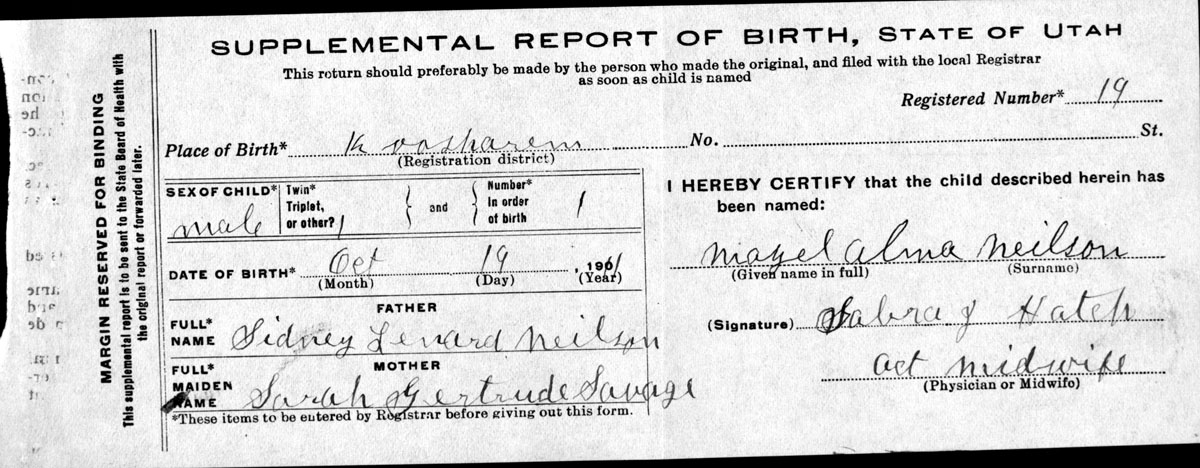 SUPPLEMENTAL REPORT OF BIRTH, STATE OF UTAH
This return should preferably be made by the person who made the original, and filed with the local Registrar
as soon as child is named
MARGIN RESERVED FOR BINDING
This supplemental report is to be sent to the State Board of Health with
the original report or forwarded later.
Registered Number* 19
Place of Birth* Koosharem No. St.
(Registration district)
SEX OF CHILD* male Twin* Triplet, or other? 1 and Number* In order of birth 1
DATE OF BIRTH* Oct 19, 1901
(Month) (Day) (Year)
FATHER
FULL* NAME Sidney Lenard Neilson
MOTHER
FULL* MAIDEN NAME Sarah Gertrude Savage
*These items to be entered by Registrar before giving out this form.
I HEREBY CERTIFY that the child described herein has
been named:
Mazel Alma Neilson
(Given name in full) (Surname)
(Signature) Sabra J Hatch
act midwife
(Physician or Midwife)